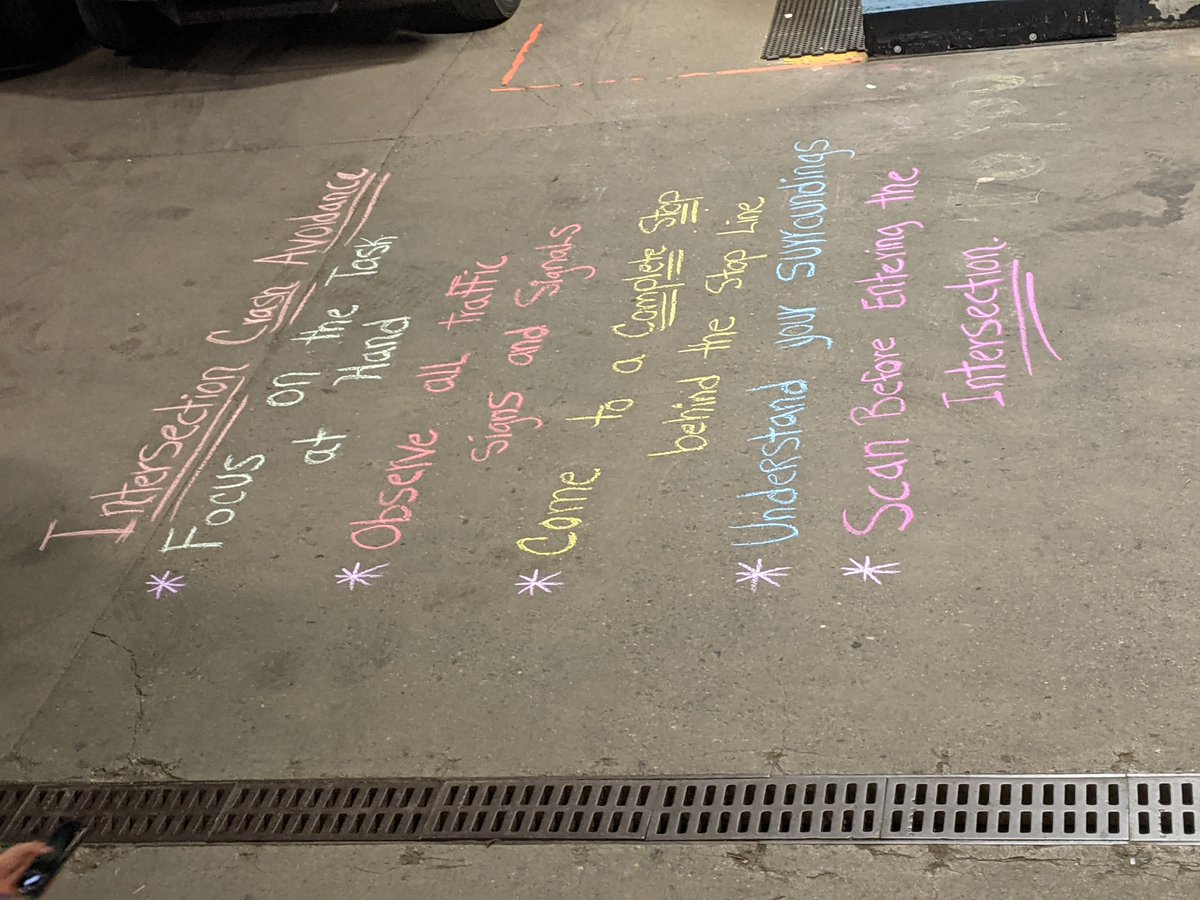 Intersection Crash Avoidance
* Focus on the Task
at Hand
* Observe all traffic
signs and signals
* Come to a Complete Stop
behind the Stop Line
* Understand your surroundings
* Scan Before Entering the
Intersection.